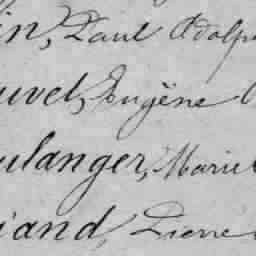 in, Paul Adolp
uvet, Eugène
ulanger, Marie
iand, Pierre